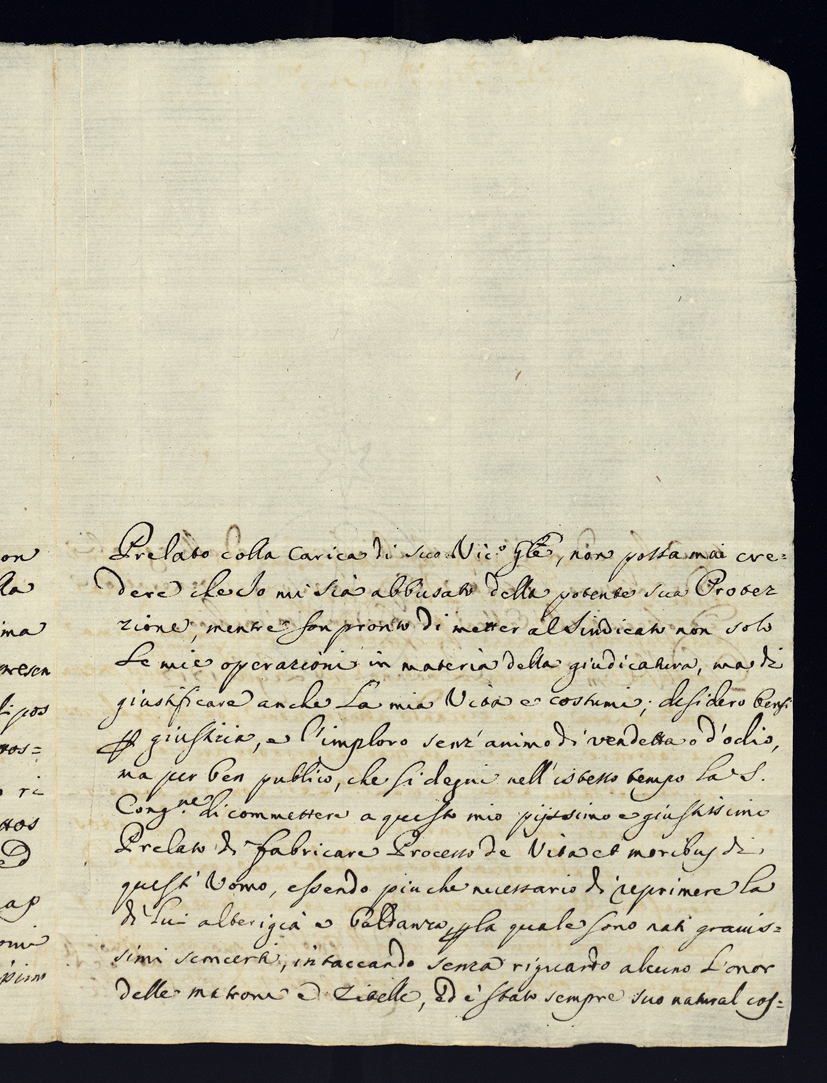 on
lla
ima
presen
li pos
ttos=
o ri
ttos
ed
ap
omi
Prelato colla Carica di suo Vic.º Gle, non possa mai cre=
dere che Io mi sia abbusato della potente sua Protez
zione, mentre son pronto di metter al Sindicato non solo
Le mie operazioni in materia della giudicatura, ma di
giustificare anche La mia Vita e costumi; desidero bensi
ꝑ giustizia, e l'imploro senz'animo di vendetta o d'odio,
ma per ben publico, che si degni nell'istesso tempo La S.
Cong.ne di commettere a questo mio pijssimo e giustissimo
Prelato di fabricare Processo de Vita et moribus di
quest'Uomo, essendo piu che necessario di reprimere la
di lui alterigia e baldanza, ꝑ la quale sono nati gravis=
simi sconcerti, intaccando senza riguardo alcuno L'onor
delle matrone e Zitelle, ed è stato sempre suo natural cos=